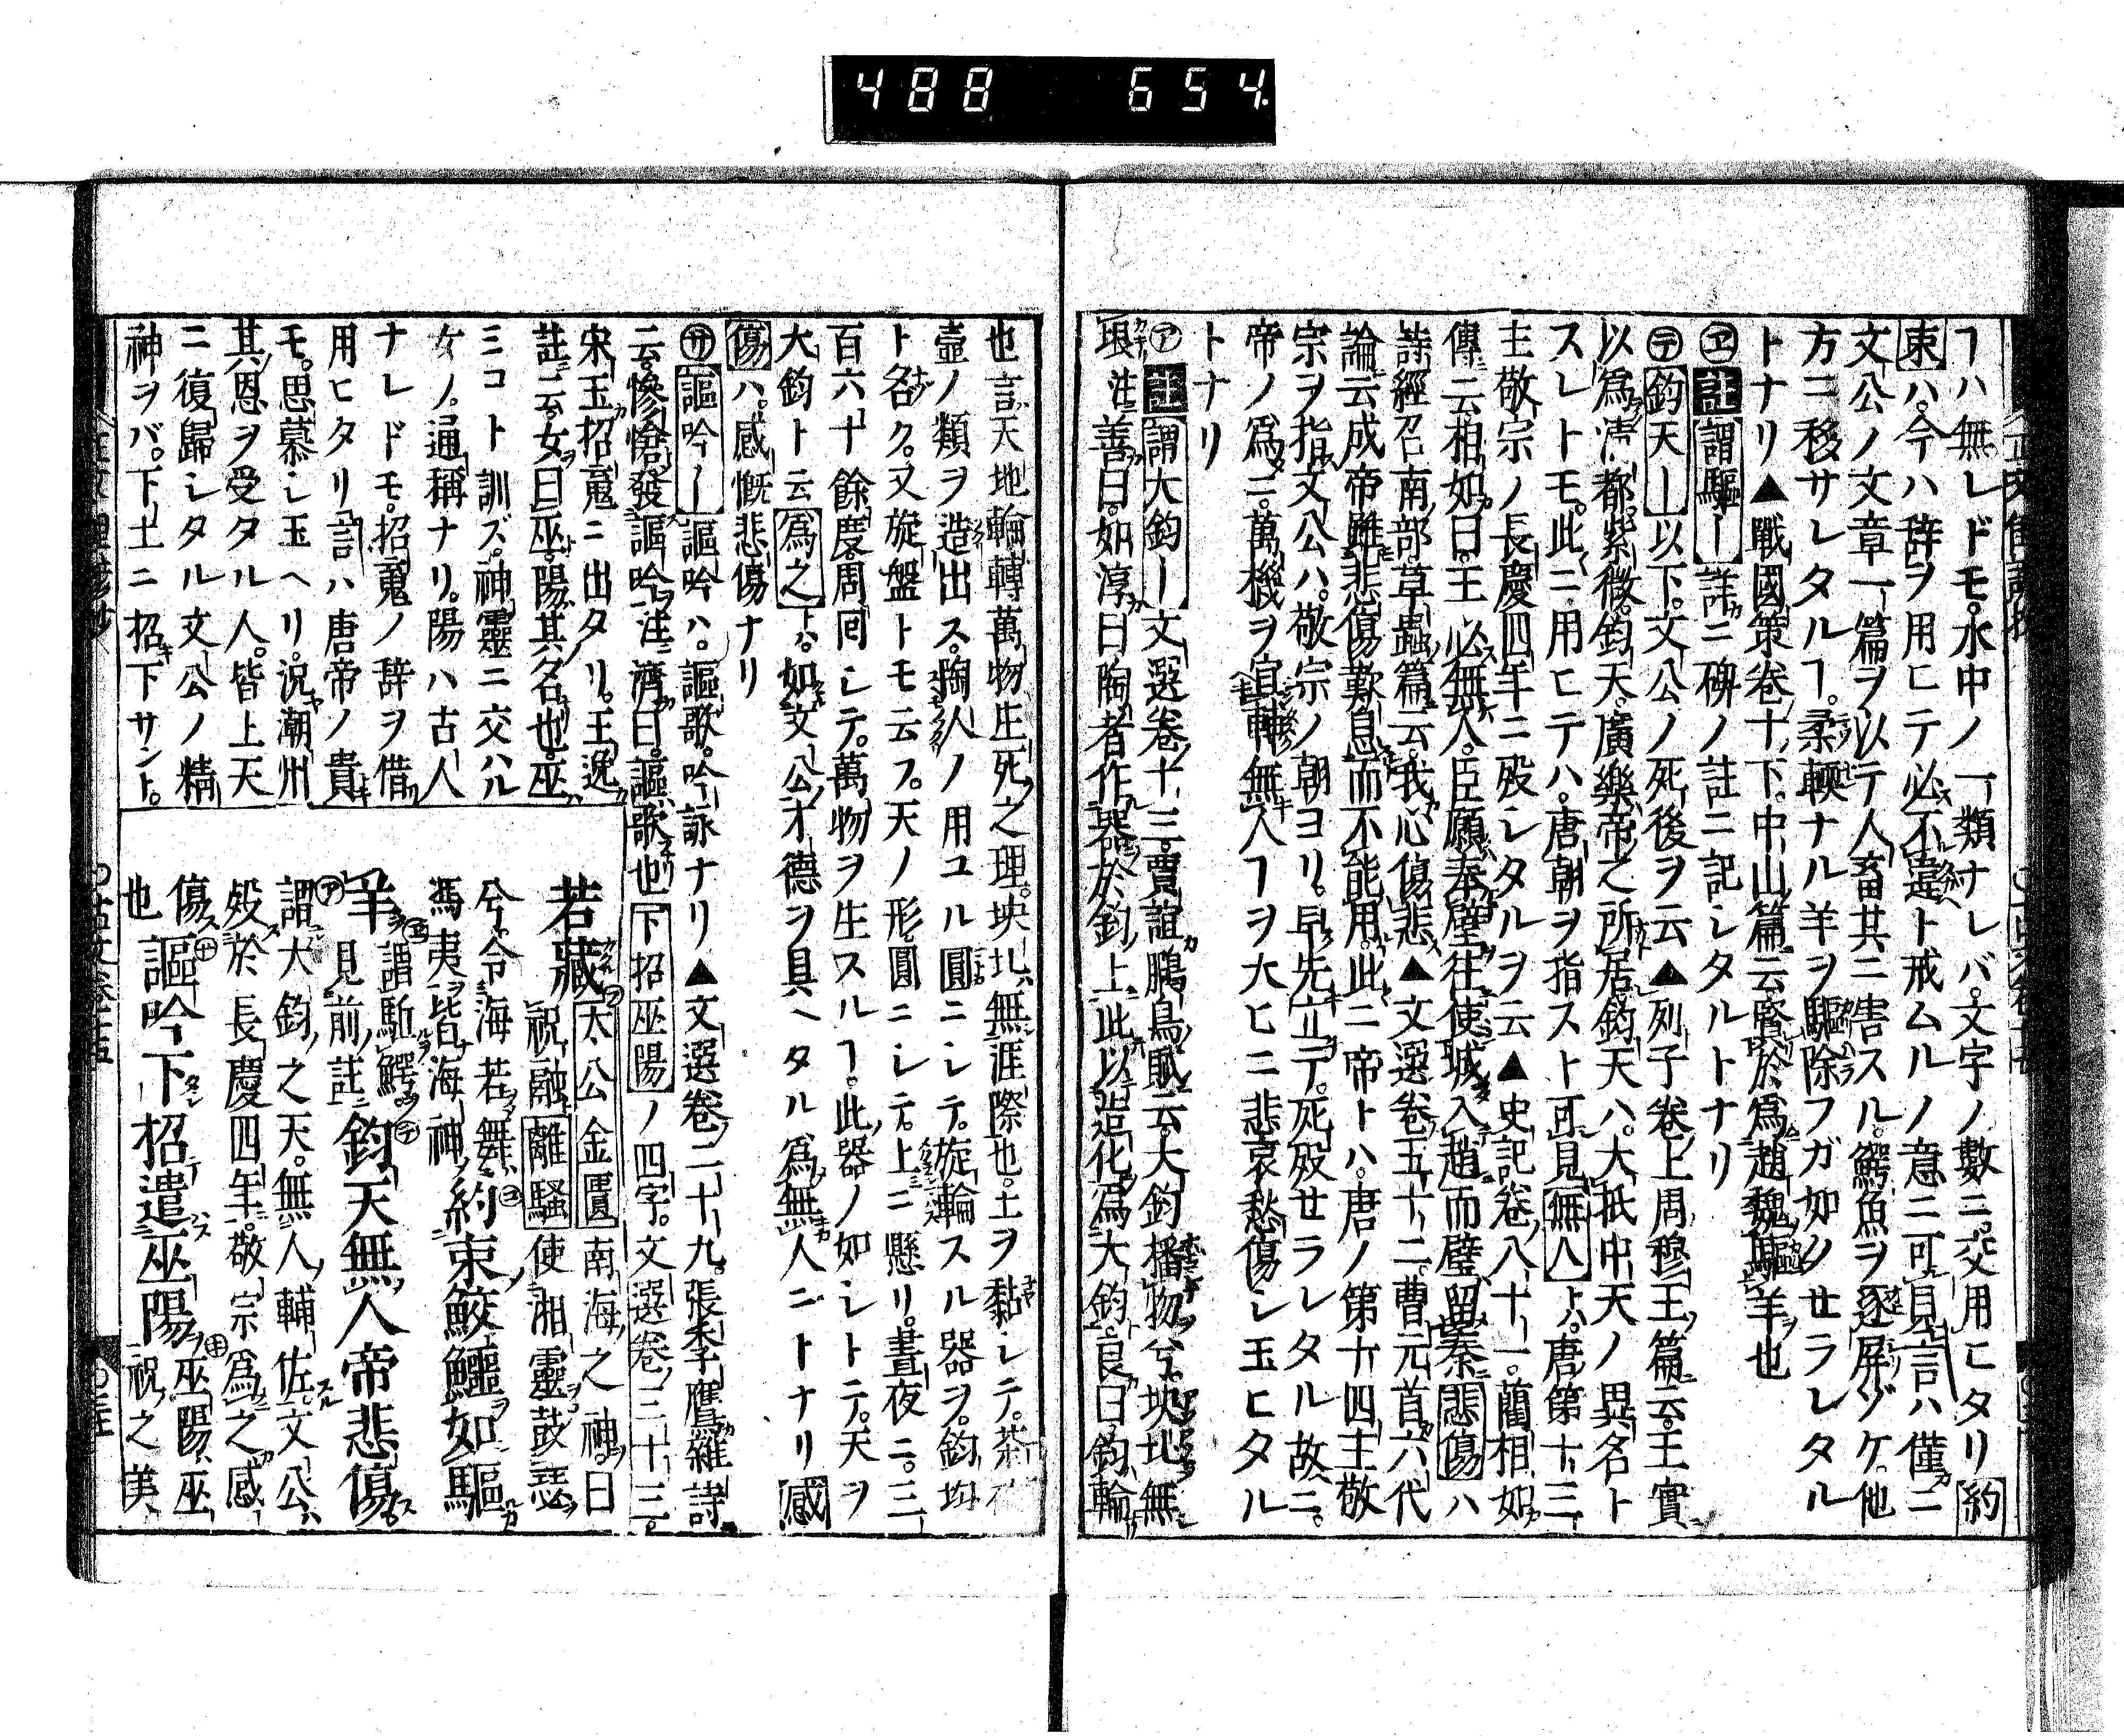 488 654
ヿハ無レドモ。水中ノ一類ナレバ。文字ノ數ニ交用ヒタリ約
束ハ。今ハ辞ヲ用ヒテ必不違ト戒ムルノ意ニ可見言ハ僅ニ
文公ノ文章一篇ヲ以テ人畜共ニ害スル。鰐魚ヲ逐屏ゾケ。他
方ニ移サレタルヿ。柔輭ナル羊ヲ驅除フガ如クセラレタル
トナリ▲戰國策卷十下。中山篇云賢於爲趙魏驅羊也
ヱ註謂驅〡詳ニ碑ノ註ニ記レタルトナリ
テ鈞天〡以下。文公ノ死後ヲ云▲列子卷上周穆王篇云。王實
以爲清都紫微。鈞天廣樂帝之所居鈞天ハ。大抵中天ノ異名ト
スレトモ。此ニ用ヒテハ。唐朝ヲ指スト可見無人トハ。唐第十三
主敬宗ノ長慶四年ニ歿レタルヲ云▲史記卷八十一。藺相如
傳云相如曰。王必無人。臣願奉璧往使城入趙而璧留秦悲傷ハ
詩經召南部草蟲篇云。我心傷悲▲文選卷五十二。曹元首六代
論云成帝雖悲傷歎息而不能用。此ニ帝トハ。唐ノ第十四主敬
宗ヲ指文公ハ。敬宗ノ朝ヨリ。早先立テ。死歿セラレタル故ニ。
帝ノ爲ニ。萬機ヲ宣幹無人ヿヲ大ヒニ悲哀愁傷レ玉ヒタル
トナリ
ア註謂大鈞〡文選卷十三。賈誼鵩鳥賦云大鈞播物兮。坱圠無
垠注善曰。如淳曰陶者作器於鈞上此以造化爲大鈞。良曰。鈞輪
也言天地輪轉萬物生死之理。坱圠。無涯際也。土ヲ黏レテ。茶
壺ノ類ヲ造出ス。陶人ノ用ユル圓ニレテ。旋輪スル器ヲ。鈞
ト名ク。又旋盤トモ云フ。天ノ形圓ニレテ。上ニ懸リ。晝夜ニ。三
百六十餘度周回レテ。萬物ヲ生スルヿ。此器ノ如レトテ。天ヲ
大鈞ト云爲之トハ。如文公才德ヲ具ヘタル爲無人ニトナリ感
傷ハ。感慨悲傷ナリ
サ謳吟〡謳吟ハ。謳歌。吟詠ナリ▲文選卷二十九。張季鷹雜詩
云。慘愴發謳吟注濟曰。謳歌也下招巫陽ノ四字。文選卷三十三。
宋玉招䰟ニ出タリ。王逸
註云。女曰巫。陽其名也。巫
ミコト訓ズ。神靈ニ交ハル
女ノ。通稱ナリ。陽ハ古人
ナレドモ。招䰟ノ辞ヲ借
用ヒタリ言ハ唐帝ノ貴
モ。思慕レ玉ヘリ。況潮州
其恩ヲ受タル人。皆上天
ニ復歸レタル文公ノ精
神ヲバ。下土ニ招下サント。
若藏太公金匱南海之神曰
祝融離騷使湘靈鼓瑟
兮令海若舞
馮夷皆海神約束鮫鱷如驅
羊謂驅鰐
見前註鈞天無人帝悲傷
謂大鈞之天。無人輔佐。文公
歿於長慶四年。敬宗爲之感
傷
也謳吟下招遣巫陽巫陽巫
祝之美